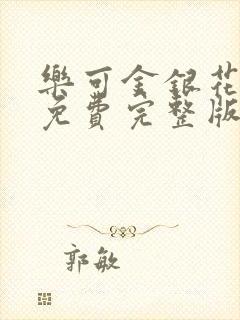 樂可金銀花
免費完整版
郭敏